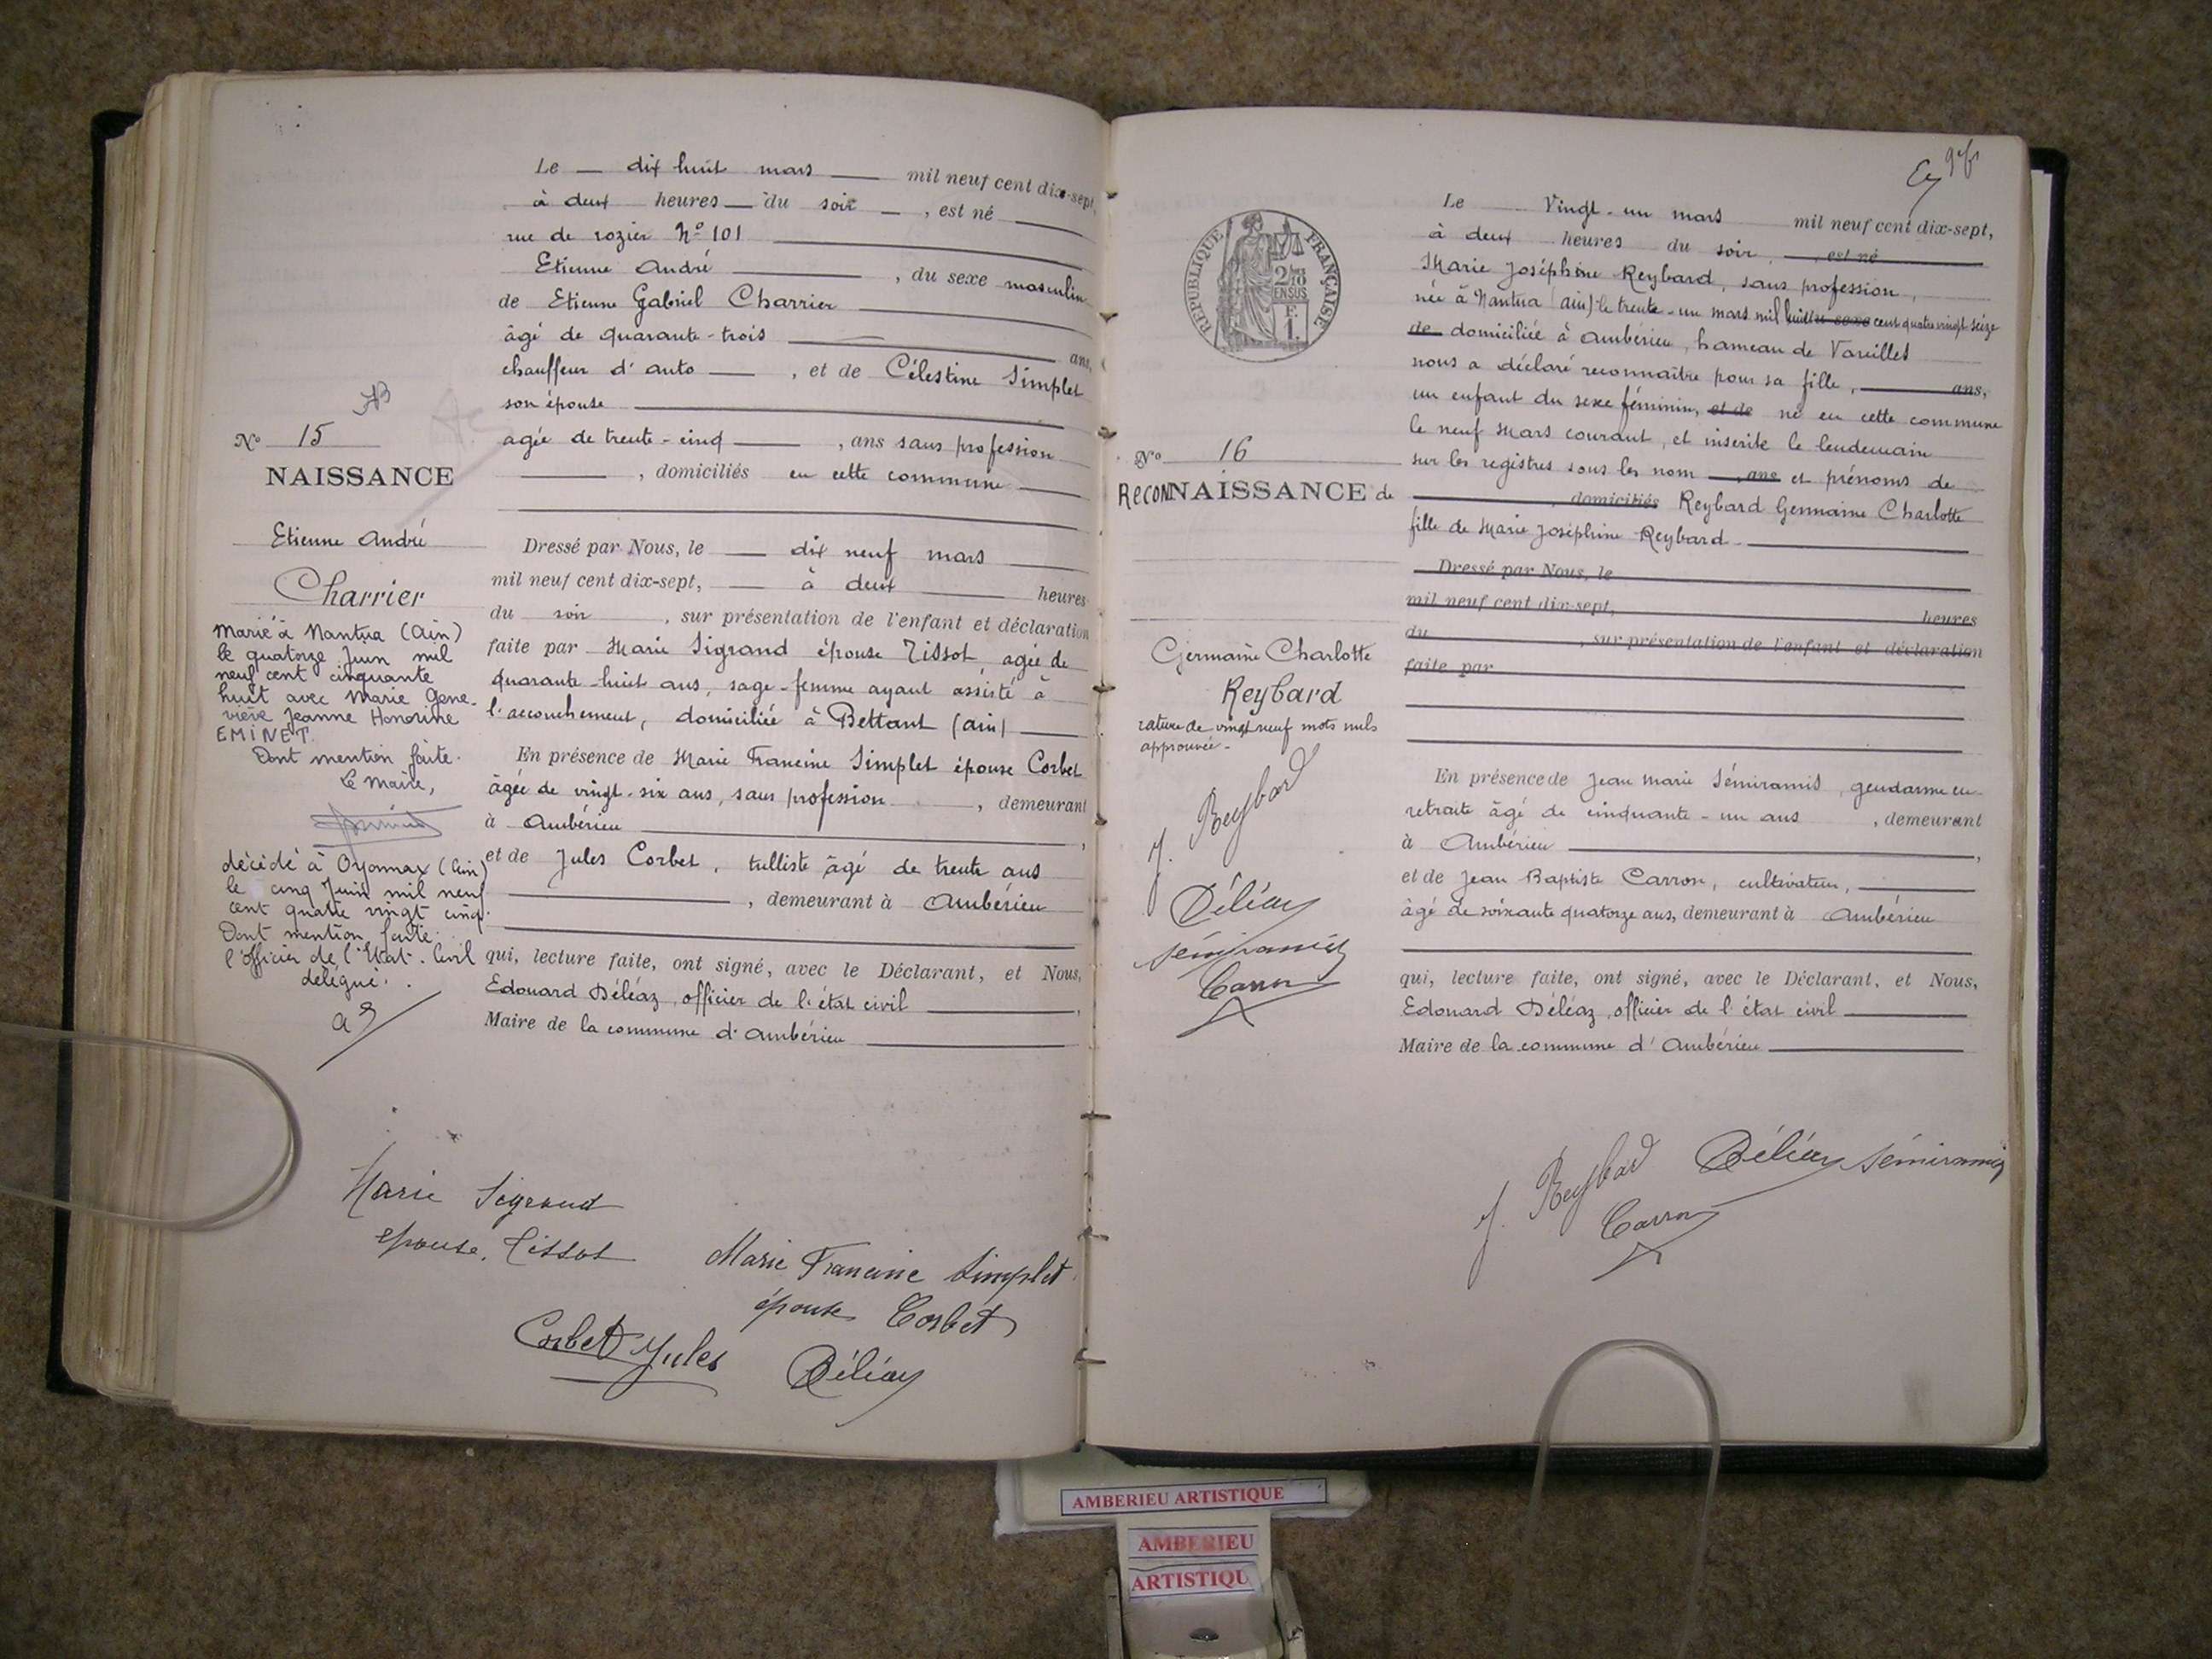 Le dix huit mars mil neuf cent dix-sept,
à deux heures du soir, est né
rue de rozier No 101
Etienne André, du sexe masculin
de Etienne Gabriel Charrier
âgé de quarante-trois ans,
chauffeur d'auto, et de Célestine Simplet
son épouse
agée de trente-cinq, ans sans profession
, domiciliés en cette commune
No 15
NAISSANCE
Etienne André
Charrier
Marié à Nantua (Ain)
le quatorze Juin mil
neuf cent cinquante
huit avec Marie Gene-
viève Jeanne Honorine
EMINET
Dont mention faite.
Le Maire,
décédé à Oyonnax (Ain)
le cinq Juin mil neuf
cent quatre vingt cinq.
Dont mention faite.
l'officier de l'Etat-Civil
délégué.
Dressé par Nous, le dix neuf mars
mil neuf cent dix-sept, à deux heures
du soir, sur présentation de l'enfant et déclaration
faite par Marie Sigrand épouse Tissot, agée de
quarante-huit ans, sage-femme ayant assisté à
l'accouchement, domiciliée à Bettant (ain)
En présence de Marie Francine Simplet épouse Corbet
âgée de vingt-six ans, sans profession, demeurant
à Ambérieu,
et de Jules Corbet, tulliste âgé de trente ans
, demeurant à Ambérieu
qui, lecture faite, ont signé, avec le Déclarant, et Nous,
Edouard Déléaz, officier de l'état civil,
Maire de la commune d'Ambérieu
Marie Sigrand
epouse Tissot
Marie Francine Simplet
épouse Corbet
Corbet Jules
Déléaz
Le Vingt-un mars mil neuf cent dix-sept,
à deux heures du soir, est né
Marie Joséphine Reybard, sans profession,
née à Nantua (ain) le trente-un mars mil huit cent quatre vingt seize
de domiciliée à Ambérieu, hameau de Vareilles
nous a déclaré reconnaître pour sa fille, ans,
un enfant du sexe féminin, et de né en cette commune
le neuf Mars courant, et inscrite le lendemain
sur les registres sous les nom ans et prénoms de
domiciliés Reybard Germaine Charlotte
fille de Marie Joséphine Reybard
REPUBLIQUE FRANÇAISE
2/10
EN SUS
F.
1.
No 16
RECONNAISSANCE de
Germaine Charlotte
Reybard
rature de vingt neuf mots nuls
approuvée.
J. Reybard
Déléaz
Sémiramis
Carron
Dressé par Nous, le
mil neuf cent dix-sept, heures
du, sur présentation de l'enfant et déclaration
faite par
En présence de Jean Marie Sémiramis, gendarme en
retraite âgé de cinquante-un ans, demeurant
à Ambérieu,
et de Jean Baptiste Carron, cultivateur,
âgé de soixante quatorze ans, demeurant à Ambérieu
qui, lecture faite, ont signé, avec le Déclarant, et Nous,
Edouard Déléaz, officier de l'état civil
Maire de la commune d'Ambérieu
J. Reybard Déléaz Sémiramis
Carron
AMBERIEU ARTISTIQUE
AMBERIEU
ARTISTIQU